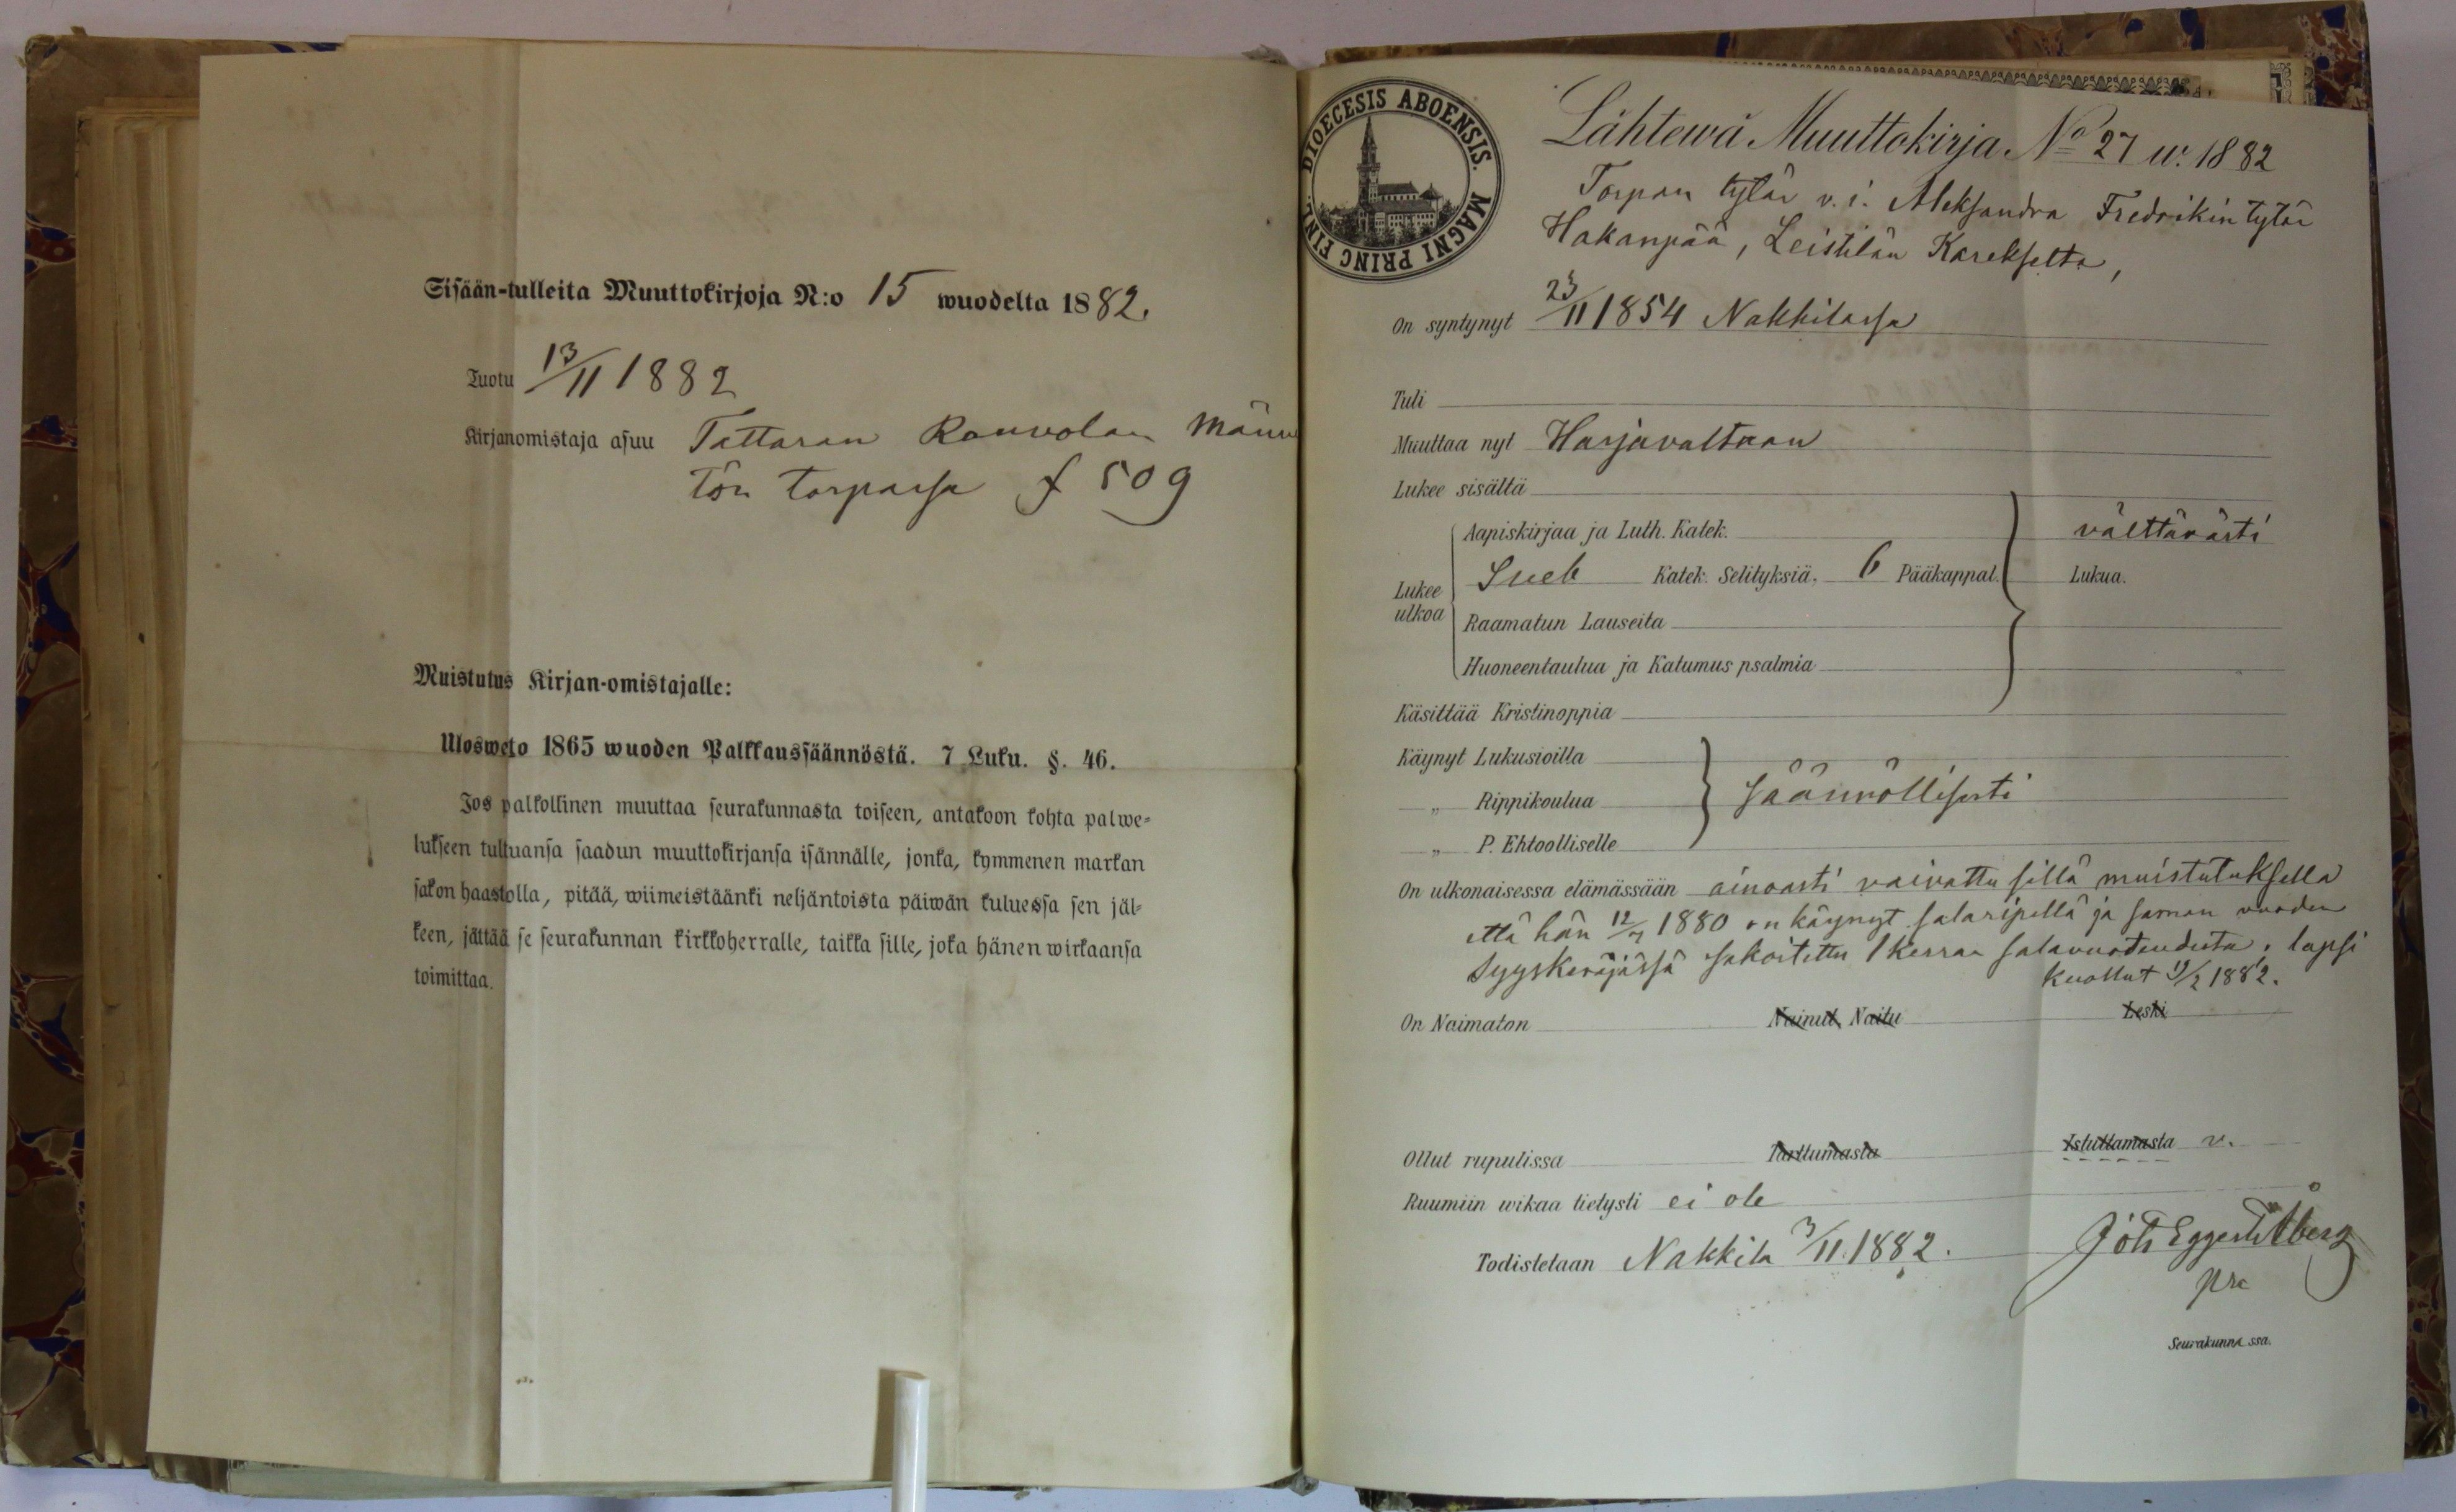 Sisään-tulleita Muuttokirjoja N:o 15 wuodelta 1882.
Tuotu 13/11 1882
Kirjanomistaja asuu Tattaran Rouvolan Männi
tön torpassa f 509
Muistutus Kirjan-omistajalle:
Ulosweto 1865 wuoden Palkkaussäännöstä. 7 Luku. §. 46.
Jos palkollinen muuttaa seurakunnasta toiseen, antakoon kohta palwe-
lukseen tultuansa saadun muuttokirjansa isännälle, jonka, kymmenen markan
sakon haastolla, pitää, wiimeistäänki neljäntoista päiwän kuluessa sen jäl-
keen, jättää se seurakunnan kirkkoherralle, taikka sille, joka hänen wirkaansa
toimittaa.
DIOECESIS ABOENSIS. MAGNI PRINC FINL.
Lähtewä Muuttokirja No 27 w. 1882
Torpan tytär v. i. Aleksandra Fredrikin tytär
Hakanpää, Leistilän Karekselta,
On syntynyt 23/11 1854 Nakkilassa
Tuli
Muuttaa nyt Harjavaltaan
Lukee sisältä
Aapiskirjaa ja Luth. Katek. välttävästi
Lukee ulkoa Sveb Katek. Selityksiä, 6 Pääkappal. Lukua.
Raamatun Lauseita
Huoneentaulua ja Katumus psalmia
Käsittää Kristinoppia
Käynyt Lukusioilla
„ Rippikoulua säännöllisesti
„ P. Ehtoolliselle
On ulkonaisessa elämässään ainoasti vaivattu sillä muistutuksella
että hän 12/7 1880 on käynyt salaripillä ja saman vuoden
Syyskäräjässä sakoitettu 1 kerran salavuoteudesta, lapsi
kuollut 11/2 1882.
On Naimaton Nainut, Naitu Leski
Ollut rupulissa Tarttumasta Istuttamasta v.
Ruumiin wikaa tietysti ei ole
Todistetaan Nakkila 3/11 1882. Joh Eggert Åberg
Seurakunnassa.